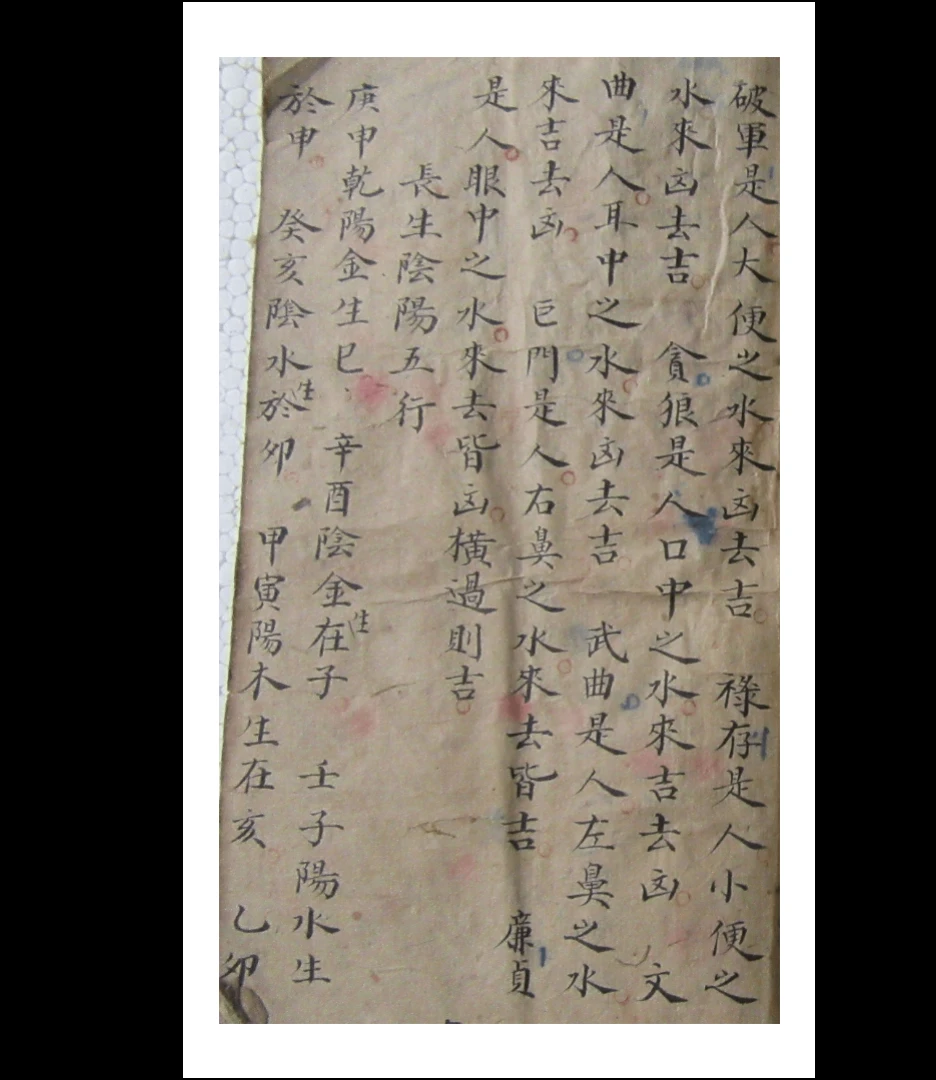 破軍是人大便之水來凶去吉　祿存是人小便之
水來凶去吉　貪狼是人口中之水來吉去凶　文
曲是人耳中之水來凶去吉　武曲是人左鼻之水
來吉去凶　巨門是人右鼻之水來去皆吉　廉貞
是人眼中之水來去皆凶橫過則吉
長生陰陽五行
庚申乾陽金生巳　辛酉陰金生在子　壬子陽水生
於申　癸亥陰水生於卯　甲寅陽木生在亥　乙卯